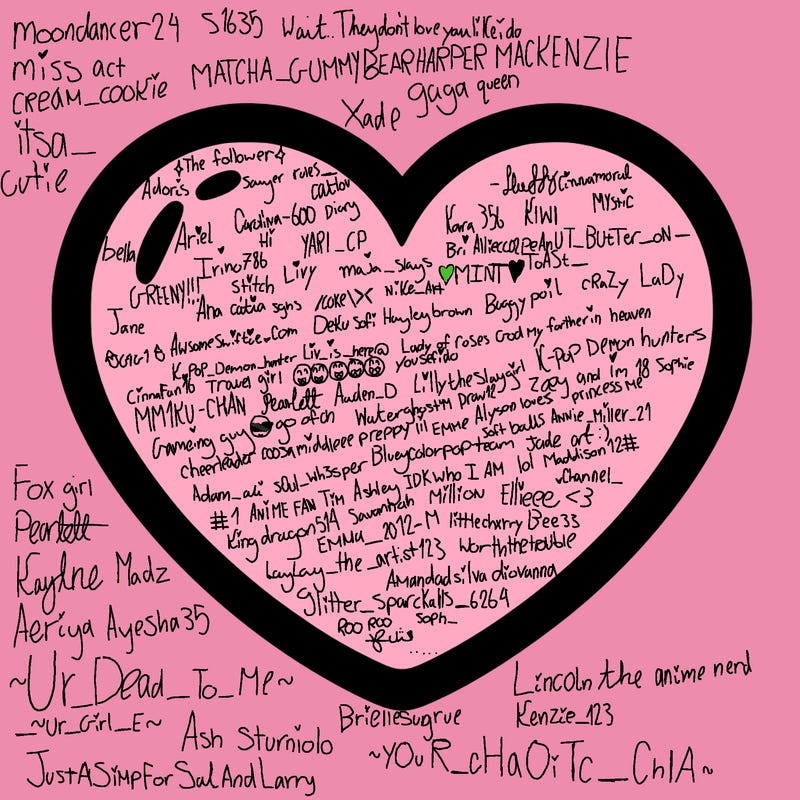 moondancer24 S1635 Wait.. They don't love you like i do
miss act MATCHA_GUMMYBEAR HARPER MACKENZIE
CREAM_COOKIE Xade gaga queen
itsa_
cutie
✧The follower✧
Adoris sawyer rules_ catlov
-fluffycinnamoral
bella Ariel Carolina-600 Diary
Kara 356 KIWI MYStiC
Hi YARI_CP
Bri Allieccop PeAnUT_BUtTer_oN_
Irino786
GREENY!!! Stitch Livy maja_slays 💚MINT🖤 ToAST_
Jane Ana catia sgns /coke\X NiKe_Art Buggy poil cRaZy LaDy
AwsomeSwiftie.Com Deku Sofi Hayleybrown
K_PoP_Demon_hunter Liv_is_here@ Lady of roses God My farther in heaven
Cinnafan16 Travel girl yousefido K-PoP Demon hunters
MM1KU-CHAN Pearlett Auden_D Lillytheslaygirl Zoey and im 18 Sophie
Grameing guy😎 go of ch Waterghost™ Draw12 princess Me
cheerleader coosamiddleee preppy!!! EMME Alyson loves
Soft balls Annie_Miller_21
Adam_ali sOul_wh3sper Blueycolorpop team Jade art :)
#1 ANiME FAN Tim Ashley IDK who I AM lol Maddison12#
King dragon514 Savannah Million Ellieee <3 Channel_
EMMA_2012-M littlecherry Bee33
LayLay_the_artist123 worththetrouble
Amandadsilva diovanna
glitter_sparckalls_6264
Roo Roo Soph_
.....
Fox girl
Pearlett
Kaylne Madz
Aeriya Ayesha35
~Ur_Dead_To_Me~
_~Ur_Girl_E~ Ash Sturniolo
JustASimpForSalAndLarry
Briellesugrue
Lincoln the anime nerd
Kenzie_123
~YOuR_cHaOiTc_ChIA~